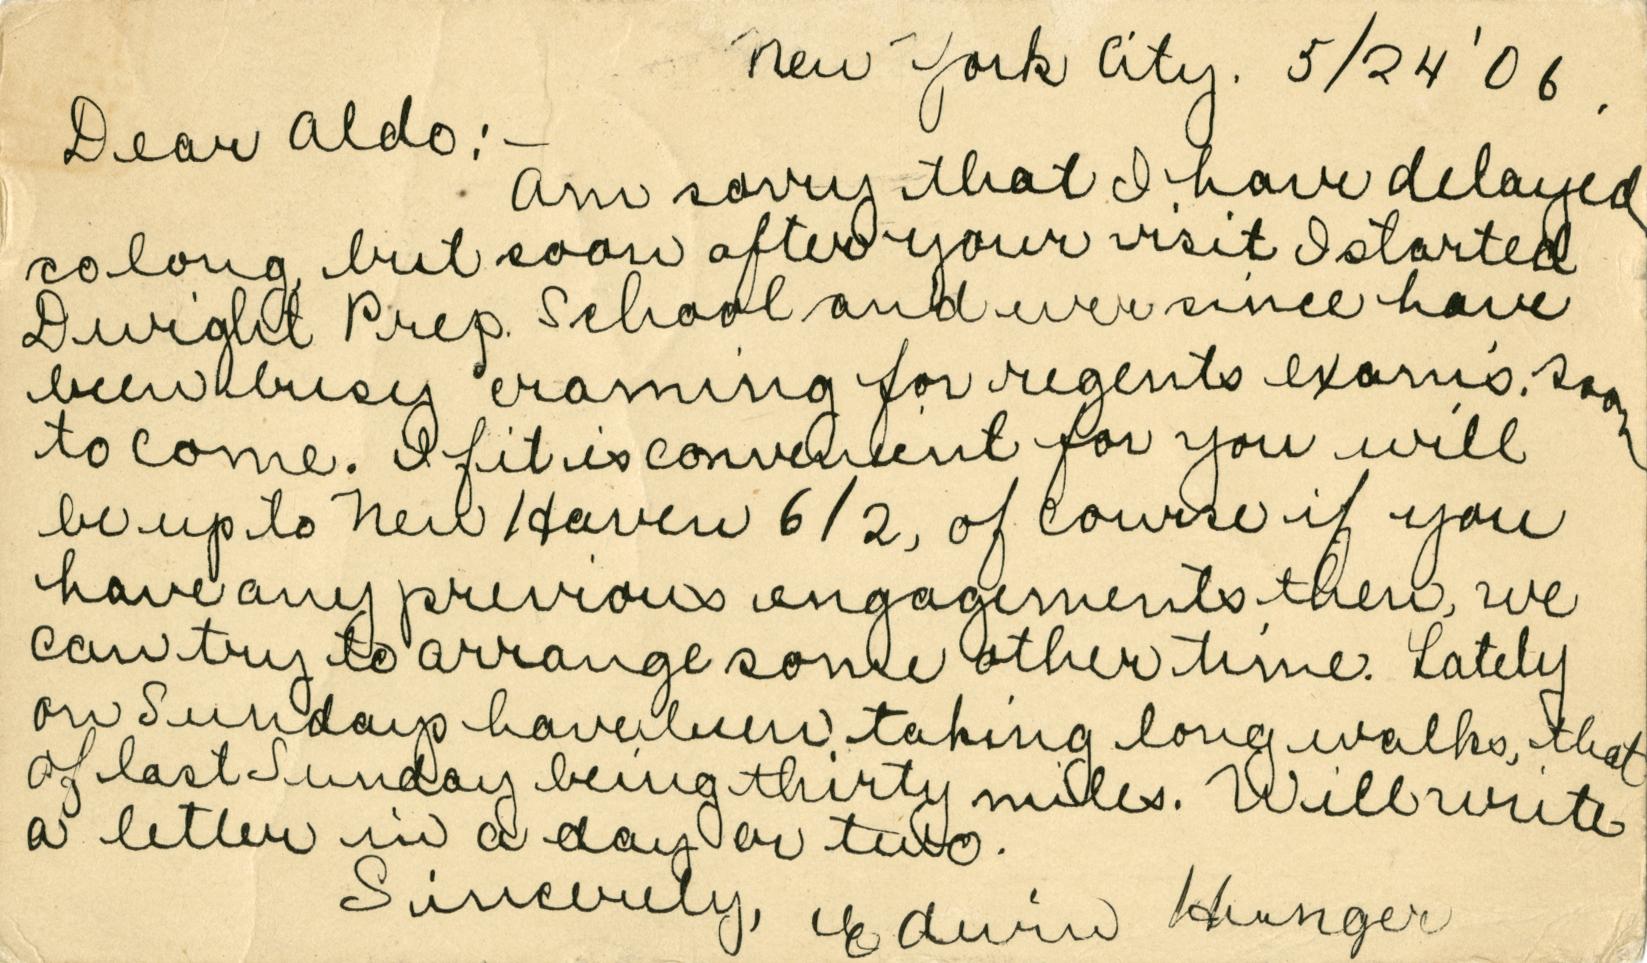 New York City. 5/24 '06.
Dear Aldo:-
Am sorry that I have delayed
so long, but soon after your visit I started
Dwight Prep. School and ever since have
been busy "craming for regents exams. soon
to come. If it is convenient for you will
be up to New Haven 6/2, of course if you
have any previous engagements then, we
can try to arrange some other time. Lately
on Sundays have been taking long walks, that
of last Sunday being thirty miles. Will write
a letter in a day or two.
Sincerely, Edwin Hunger